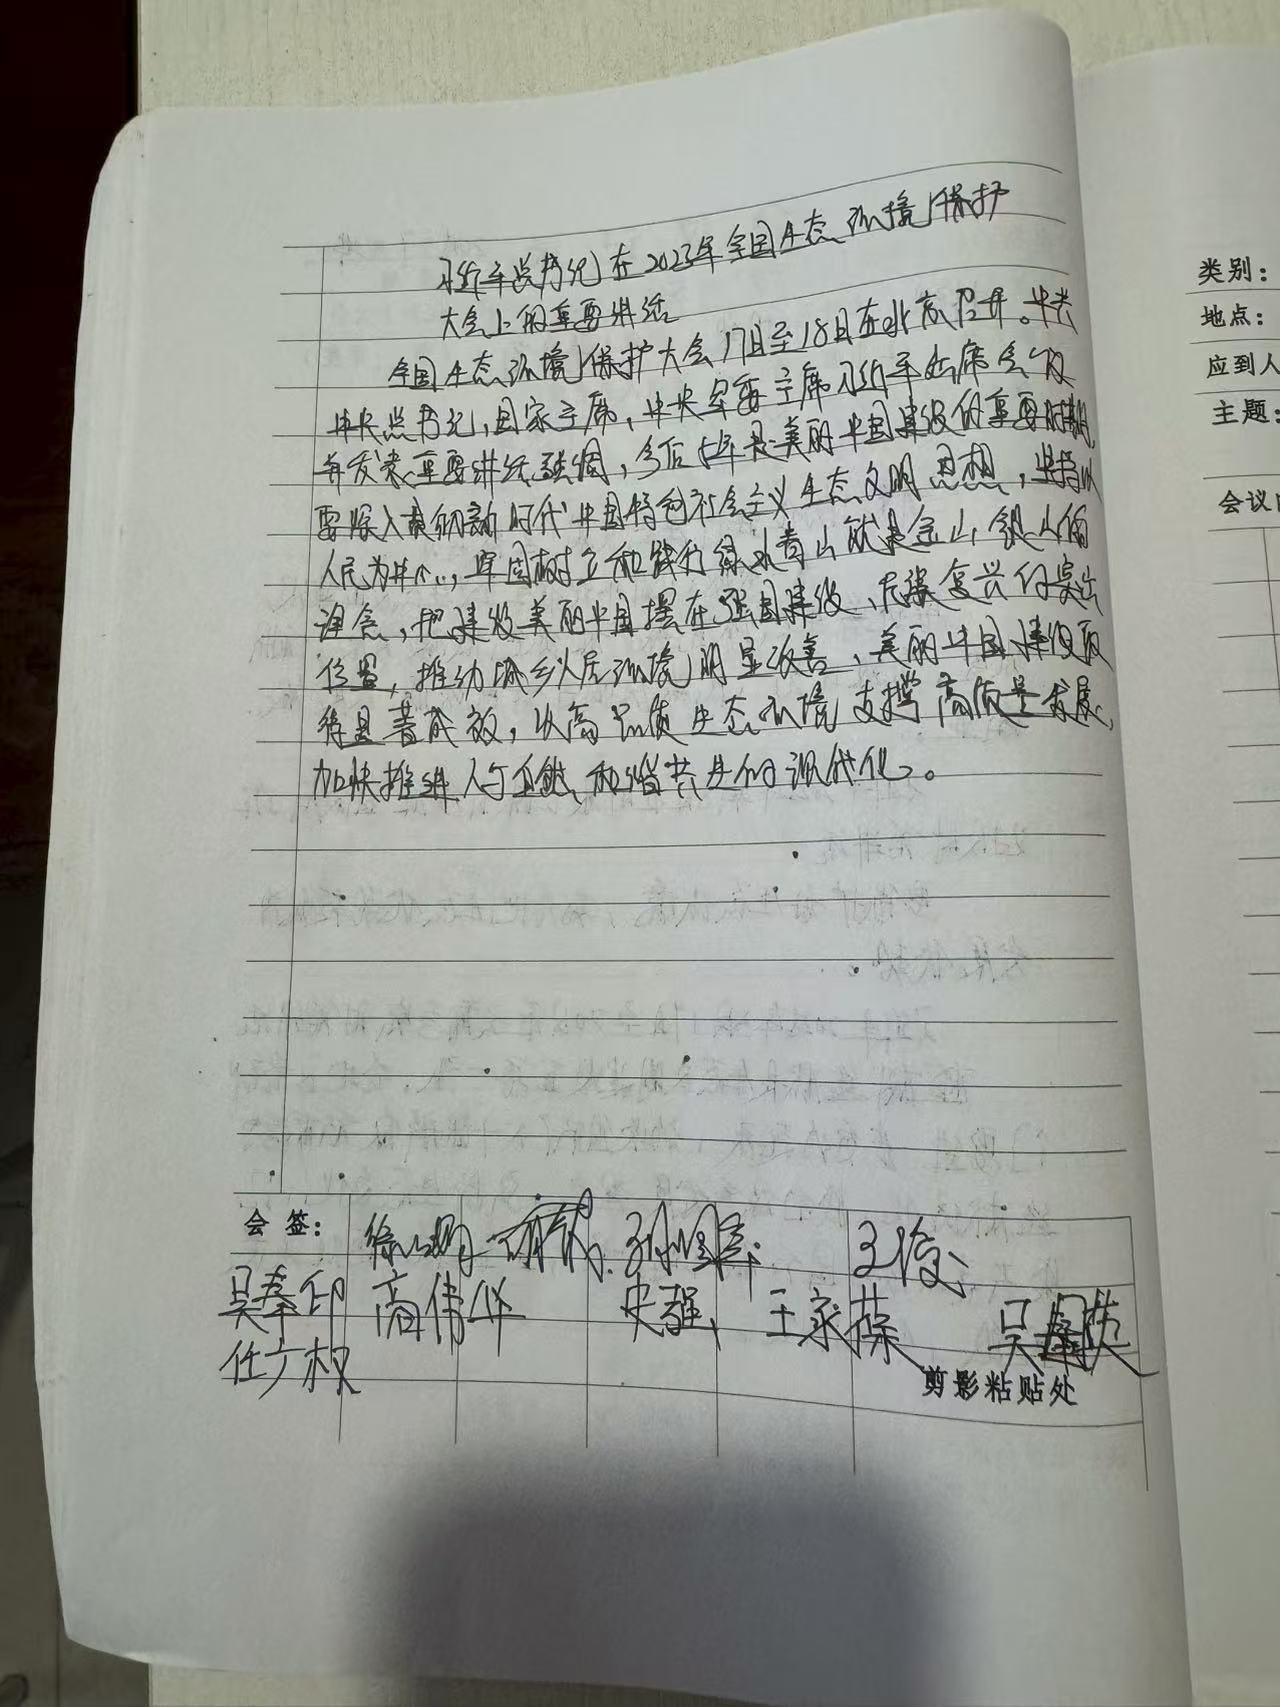 习近平总书记在2023年全国生态环境保护
大会上的重要讲话
全国生态环境保护大会17日至18日在北京召开。中共
中央总书记,国家主席,中央军委主席习近平出席会议
并发表重要讲话强调,今后5年是美丽中国建设的重要时期,
要深入贯彻新时代中国特色社会主义生态文明思想,坚持以
人民为中心,牢固树立和践行绿水青山就是金山银山的
理念,把建设美丽中国摆在强国建设、民族复兴的突出
位置,推动城乡人居环境明显改善、美丽中国建设取
得显著成效,以高品质生态环境支撑高质量发展,
加快推进人与自然和谐共生的现代化。
会 签:
孙国军 王俊
吴奉印 高伟华 史强 王家葆 吴
任广权
剪影粘贴处
类别:
地点:
应到人
主题:
会议